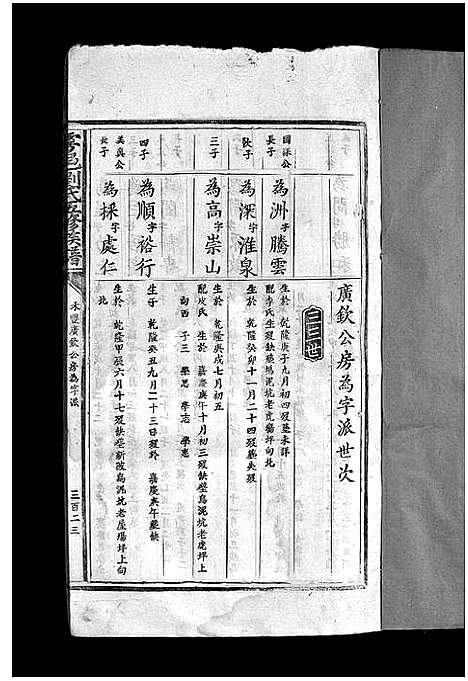 廣欽公房為字派世次
三三世
國深公
長子
為洲字騰雲
生於 乾隆庚子九月初四歿葬未詳
配李氏生歿缺葬烏泥坑老虎塲坪向北
次子
為深字淮泉
生於 乾隆癸卯十一月二十四歿葬失歿
三子
為高字崇山
生於 乾隆庚戌七月初五
配皮氏 生於 嘉慶庚午十月初三歿缺葬烏泥坑老虎坪上
向西 子三 學思 學志 學惠
四子
為順字裕行
生於 乾隆癸丑九月二十三日歿於 嘉慶庚午葬缺
美與公
長子
為採字處仁
生於 乾隆甲辰六月十七歿缺葬新陂烏泥坑老屋塲坪上向
北
雩邑劉氏五修族譜
永豐廣欽公房為字派
三百二三